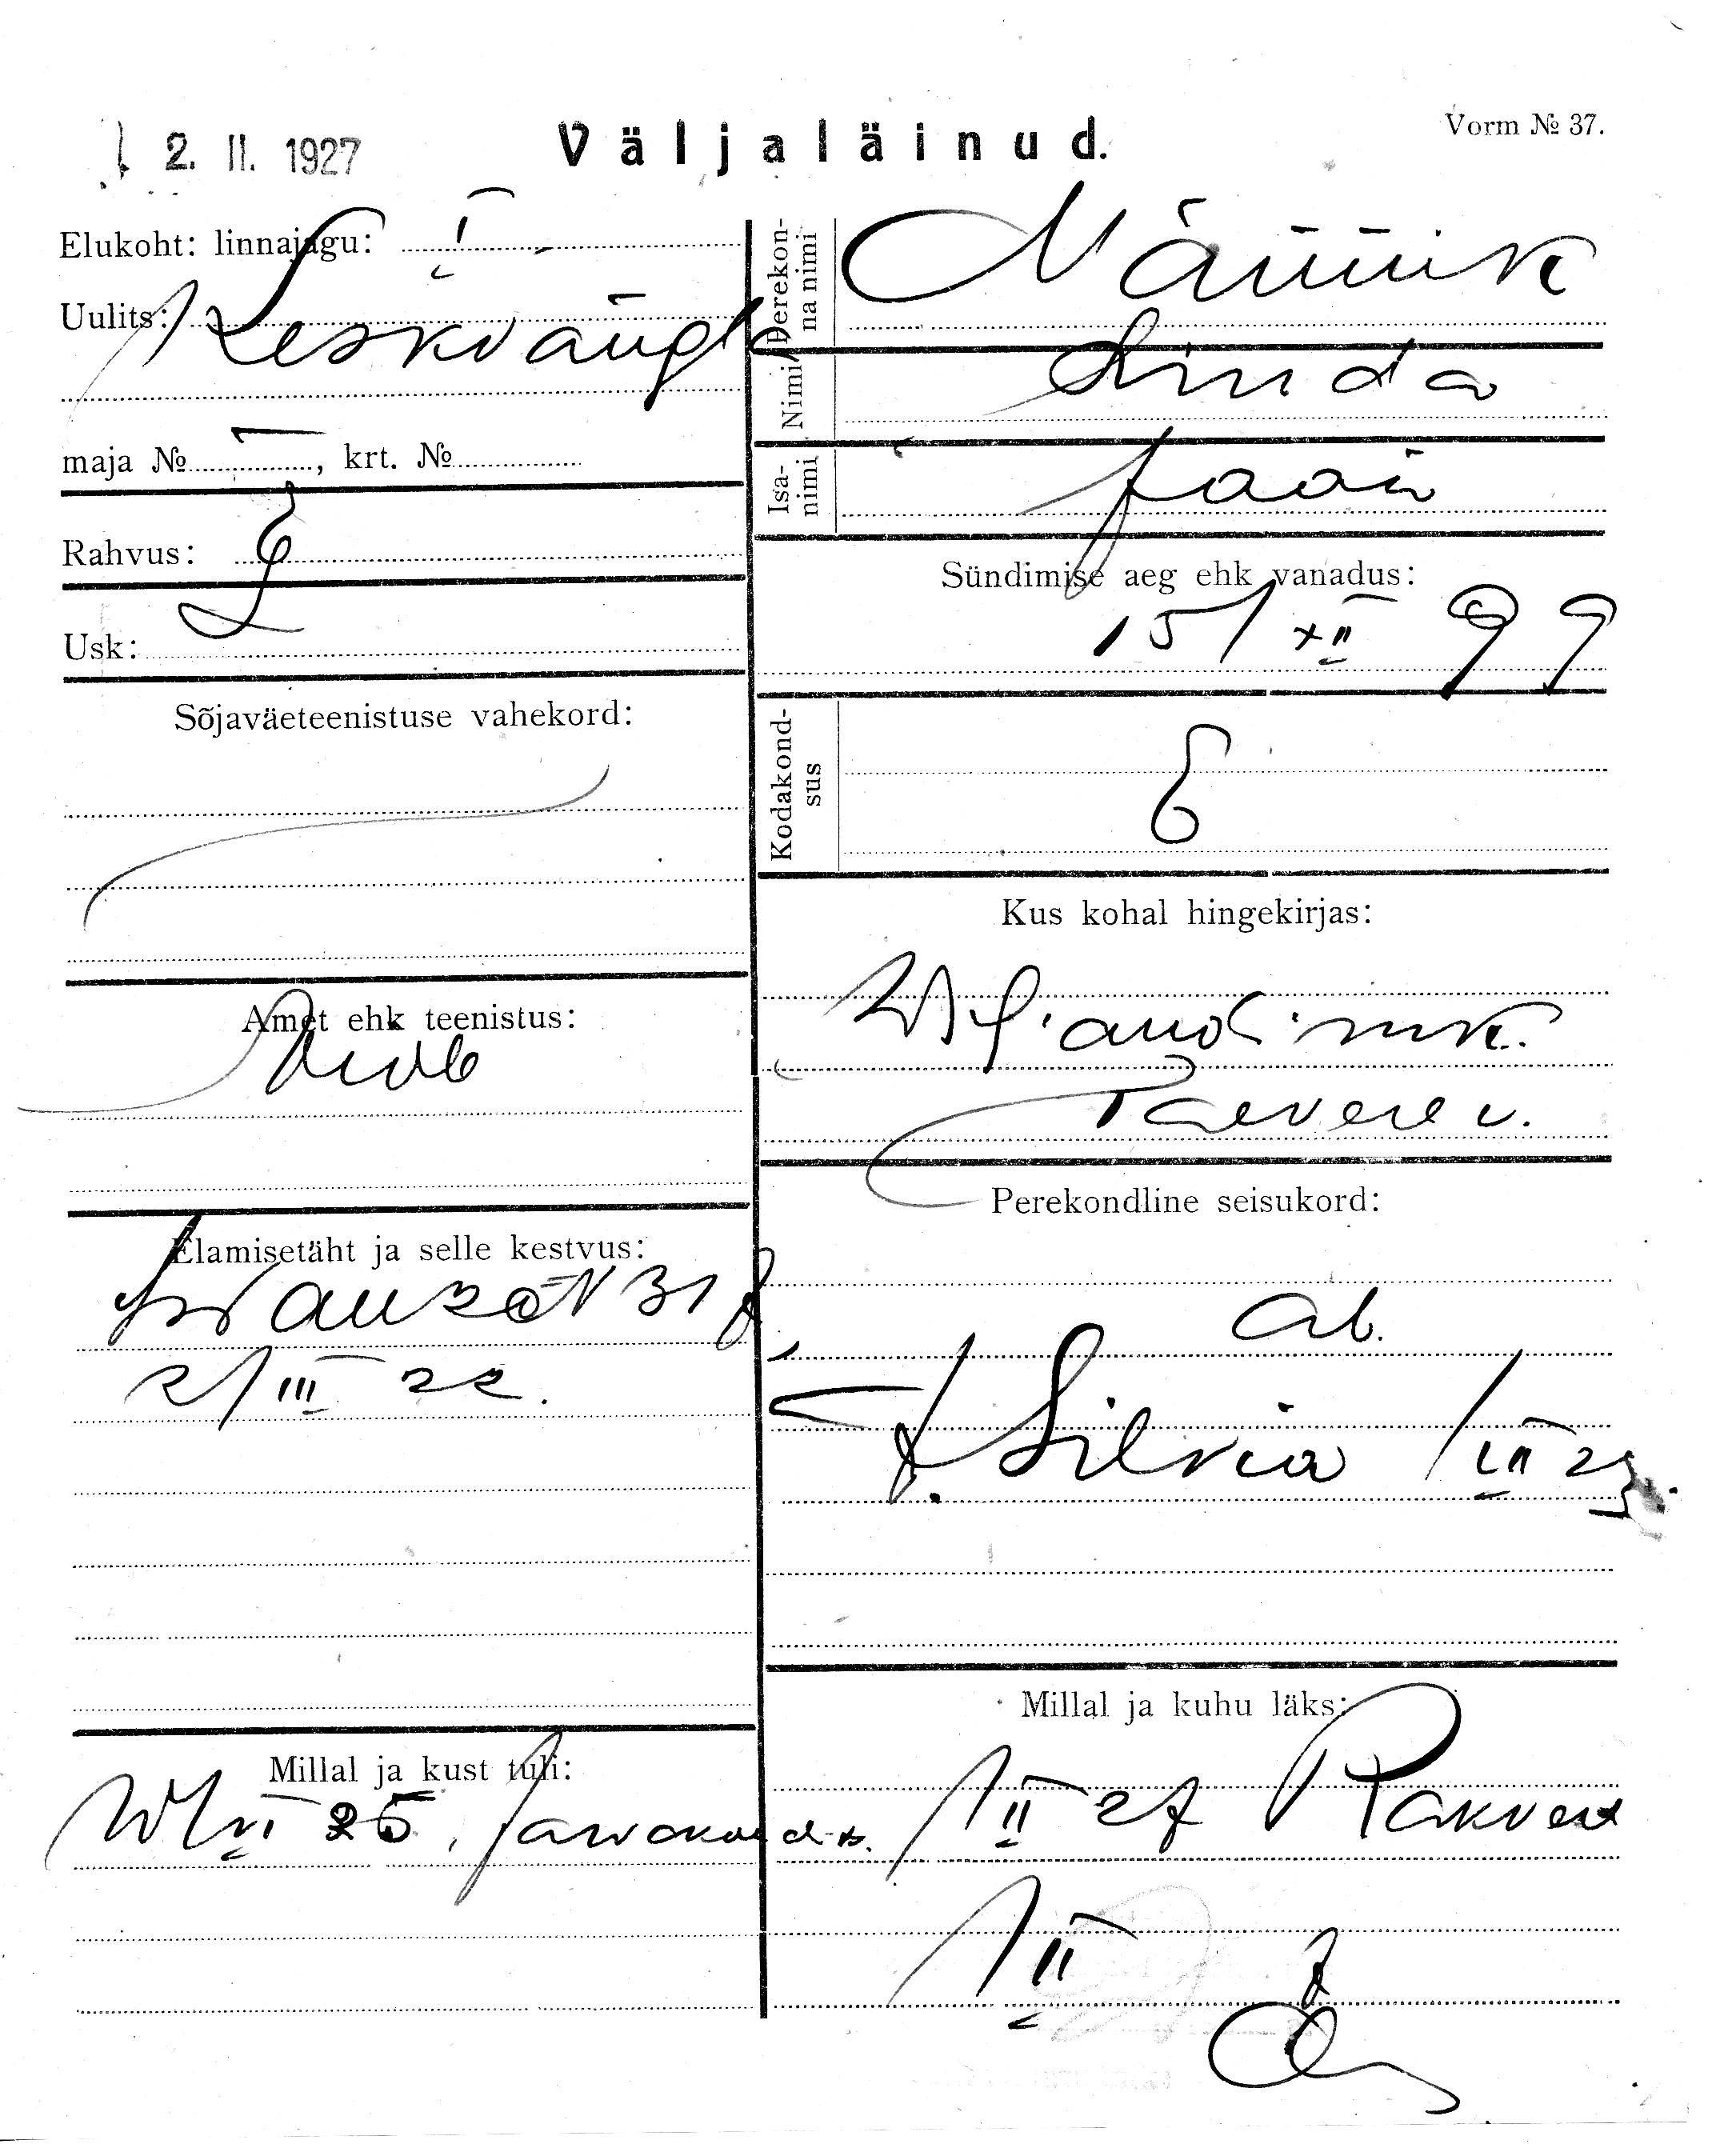 2. II. 1927
Väljaläinud.
Vorm № 37.
Elukoht: linnajagu: I
Uulits:
maja № , krt. №
Rahvus: E
Usk: L
Sõjaväeteenistuse vahekord:
Amet ehk teenistus:
Elamisetäht ja selle kestvus:
2/III 22.
Millal ja kust tuli:
VI 25.
Perekonna nimi
Nimi Linda
Isanimi Jaan
Sündimise aeg ehk vanadus:
15/XII 99
Kodakondsus E
Kus kohal hingekirjas:
Taevere v.
Perekondline seisukord:
ab.
t. Silvia
Millal ja kuhu läks:
1/II 27 Rakvere
1/II